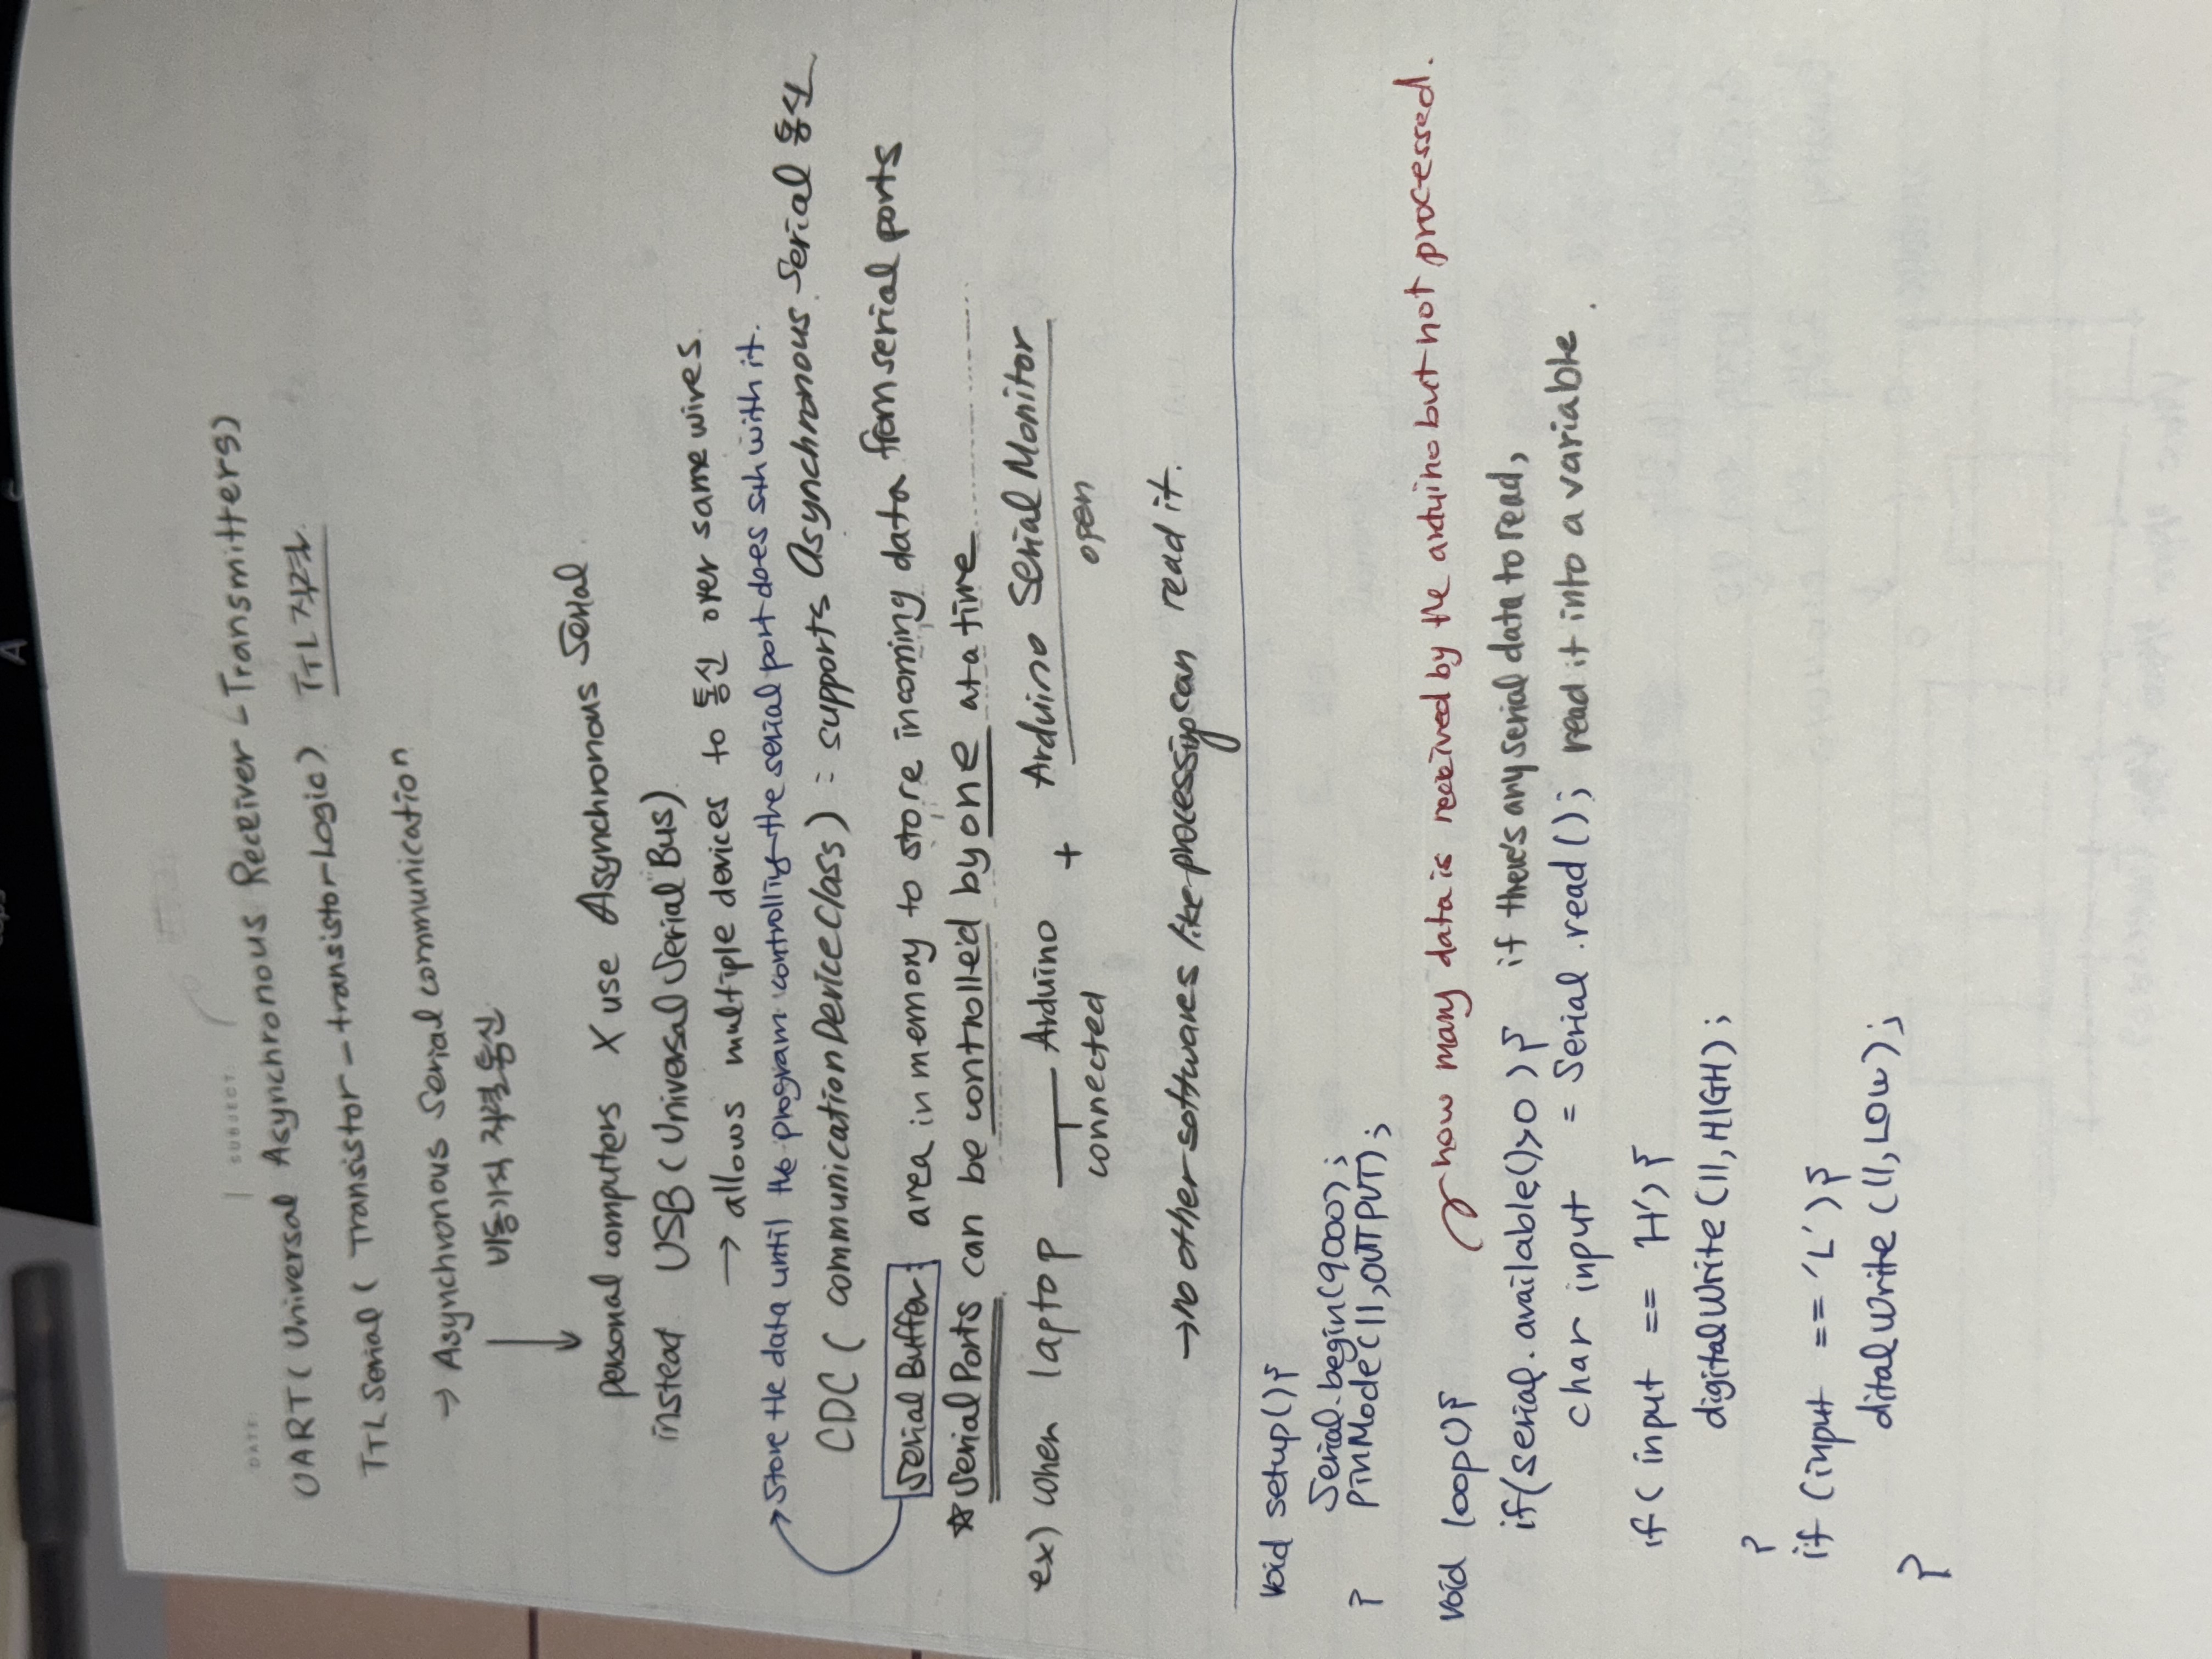 DATE: SUBJECT:
UART (Universal Asynchronous Receiver-Transmitters)
TTL Serial (Transistor-transistor-Logic) TTL 직렬
→ Asynchronous Serial communication
비동기식 직렬통신
personal computers X use Asynchronous Serial
instead USB (Universal Serial Bus)
→ allows multiple devices to 통신 over same wires.
→ Store the data until the program controlling the serial port does sth with it.
CDC (communication Device Class) : supports Asynchronous Serial 통신
Serial Buffer: area in memory to store incoming data from serial ports
☆ Serial Ports can be controlled by one at a time
ex) when laptop — Arduino + Arduino Serial Monitor
connected open
→ no other softwares like processing can read it.
void setup(){
Serial.begin(9600);
pinMode(11,OUTPUT);
}
how many data is received by the arduino but not processed.
void loop(){
if(serial.available()>0){ if there's any serial data to read,
char input = Serial.read(); read it into a variable.
if (input == 'H'){
digitalWrite(11,HIGH);
}
if (input == 'L'){
ditalWrite(11,LOW);
}